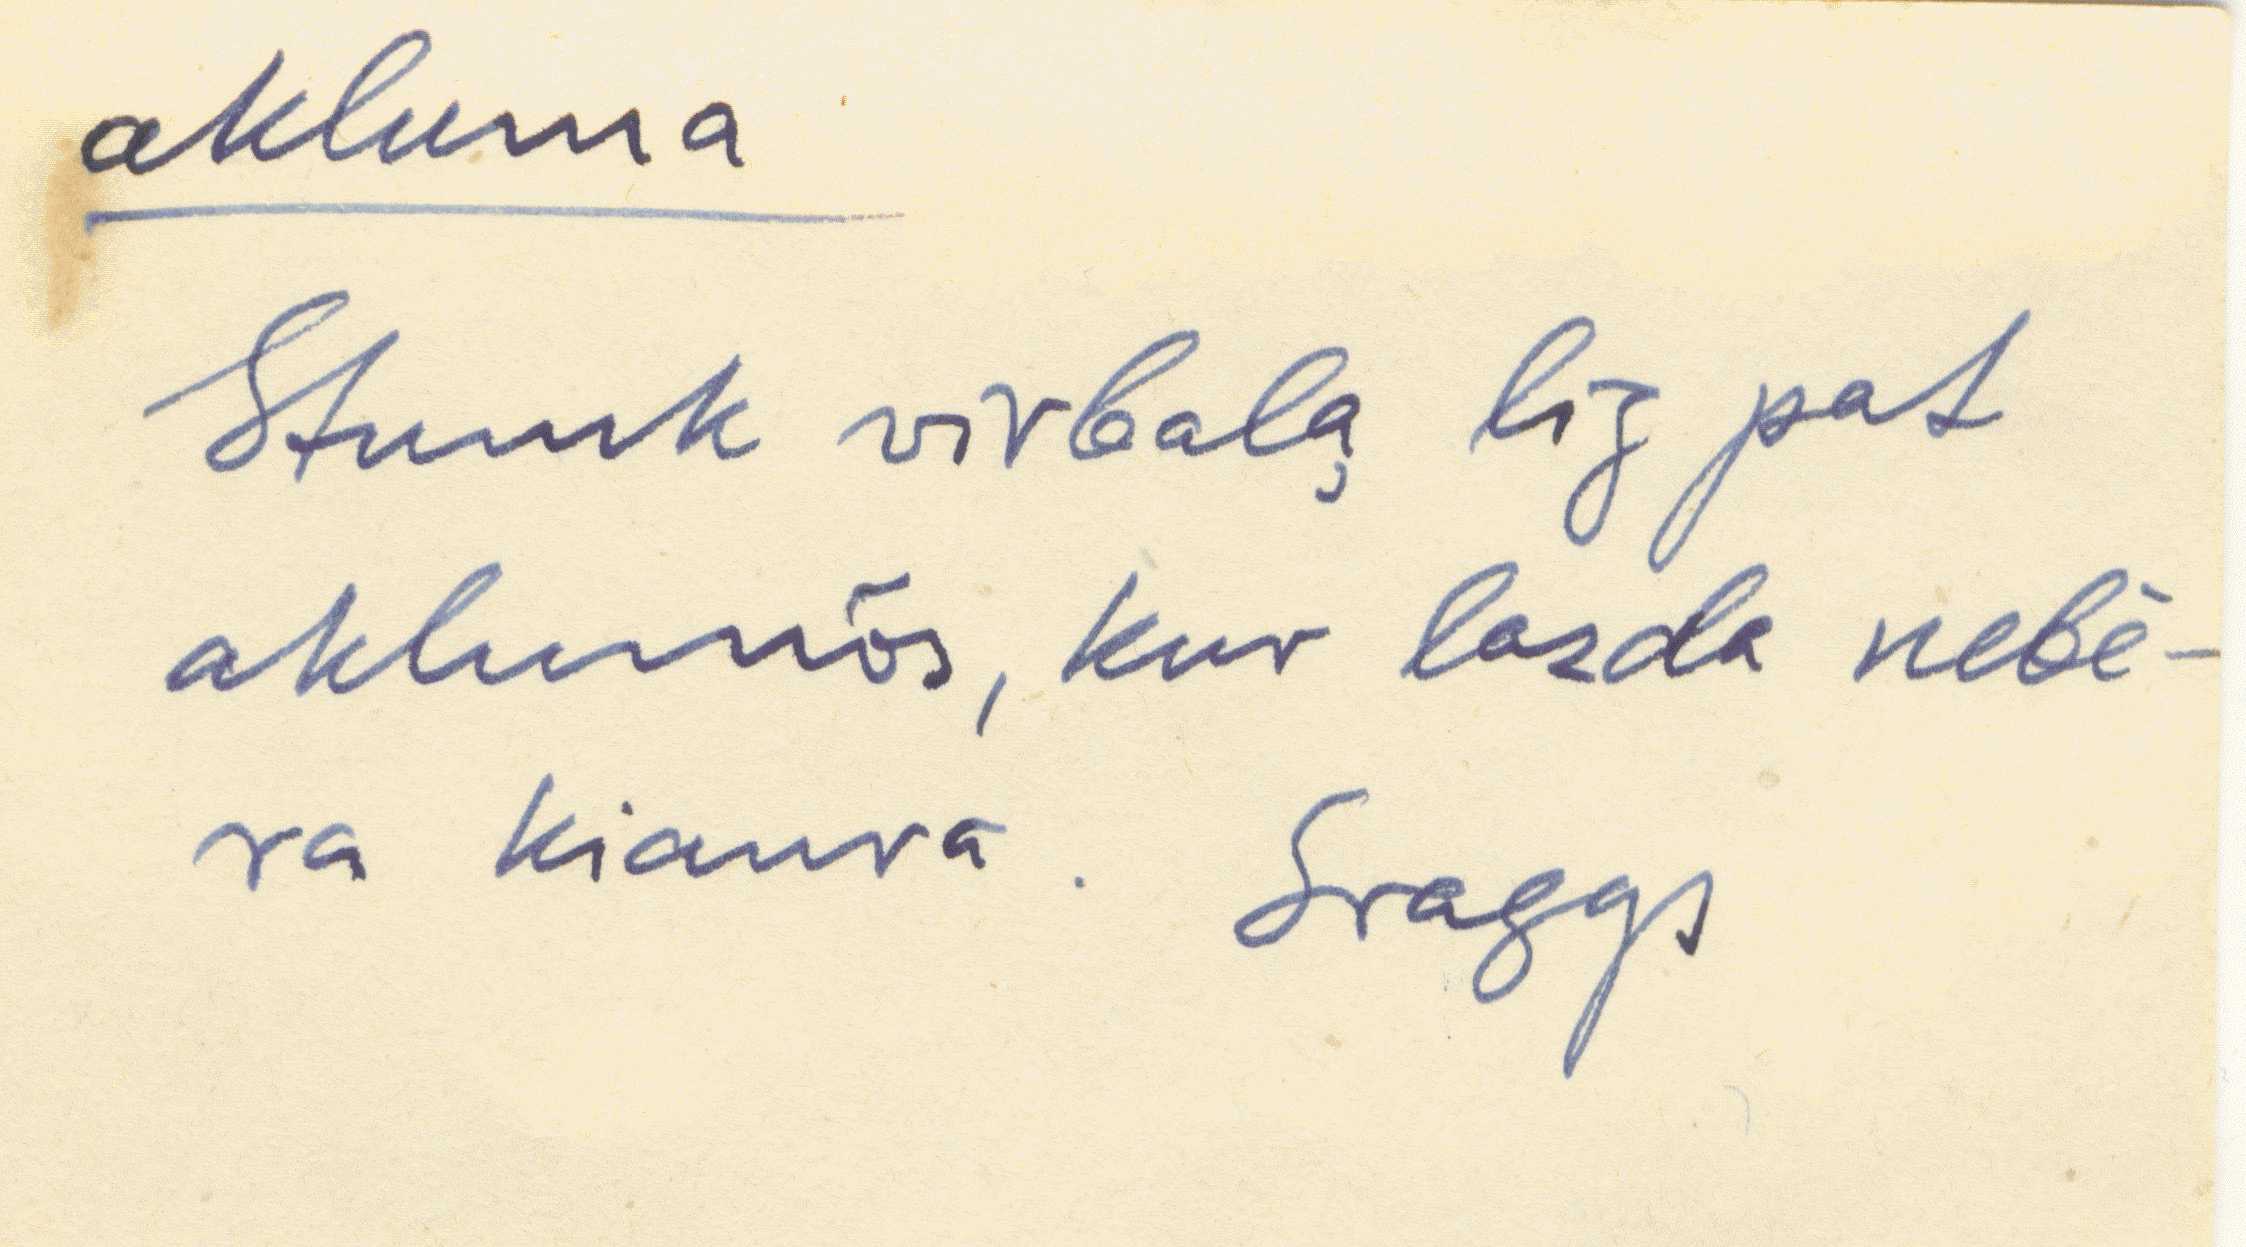 akluma
Stumk virbalą lig pat
aklumõs, kur lazda nebė-
ra kiaura. Sraggs